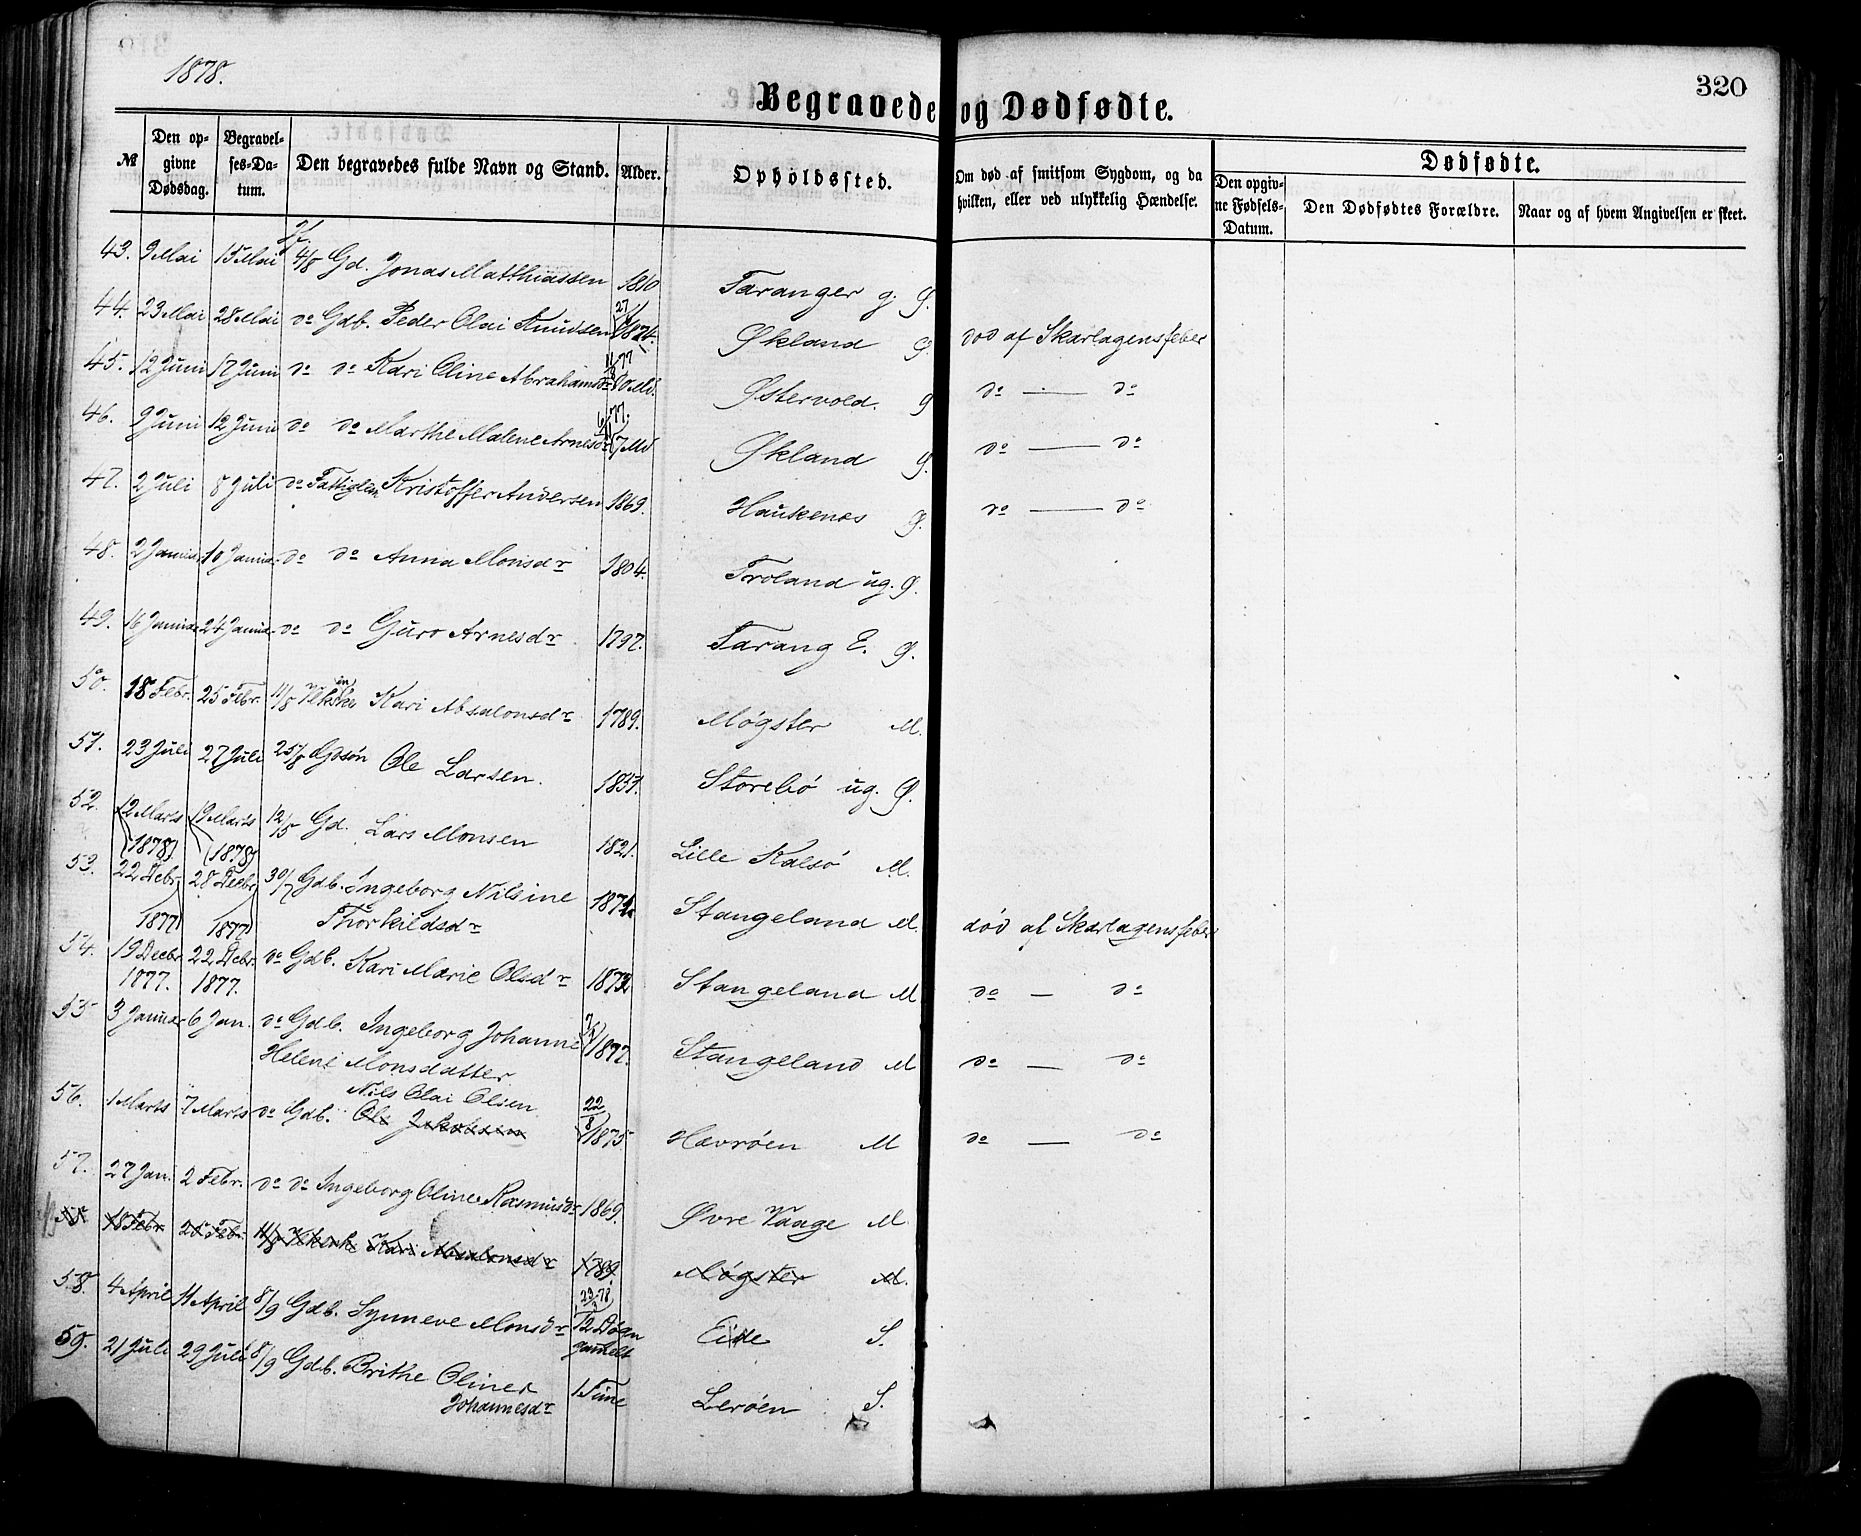 1878.
320
Begravede og Dødfødte.
№ Den opgivne Dødsdag. Begravelses-Datum. Den begravedes fulde Navn og Stand. Alder. Opholdssted. Om død af smitsom Sygdom, og da hvilken, eller ved ulykkelig Hændelse. Dødfødte. Den opgivne Fødsels-Datum. Den Dødfødtes Forældre. Naar og af hvem Angivelsen er skeet.
43. 9 Mai 15 Mai 4/8 Gd. Jonas Matthiassen 1810 Taranger g. Ø.
44. 23 Mai 28 Mai do Gdb. Peder Olai Knudsen 1874. Økland Ø. død af Skarlagensfeber
45. 12 Juni 17 Juni do do Kari Oline Abrahamsdr Østervold. Ø do — do
46. 9 Juni 12 Juni do do Marthe Malene Arnesdr 7 Md Økland Ø. do — do
47. 2 Juli 8 Juli do Fattiglem Kristoffer Andersen 1869. Haukenæs Ø. do — do
48. 2 Januar 10 Januar do do Anna Monsdr 1804. Troland ug. Ø.
49. 16 Januar 24 Januar do do Guro Arnesdr 1797. Tarang E. Ø.
50. 18 Febr. 25 Febr. 11/8 Kari Absalonsdr 1789. Møgster M.
51. 23 Juli 27 Juli 25/8 Gdsøn Ole Larsen. 1857. Storebø ug. Ø.
52. 12 Marts 19 Marts 12/5 Gd. Lars Monsen 1821. Lille Kalsø M.
(1878) (1878)
53. 22 Debr. 28 Decbr. 30/7 Gdb. Ingeborg Nilsine 1874. Stangeland M død af Skarlagensfeber
1877) 1877) Thorkildsdr
54. 19 Decbr. 22 Debr. do Gdb. Kari Marie Olsdr 1873 Stangeland M do — do
1877. 1877.
55 3 Januar 6 Jan. do Gdb. Ingeborg Johanne 1872. Stangeland M do — do
Helene Monsdatter
Nils Olai Olsen
56. 1 Marts 7 Marts do Gdb. Ole Jakobsen 22/8 1875 Hævrøen M do — do
57. 27 Jan. 2 Febr. do do Ingeborg Oline Rasmusdr 1869. Øvre Vaage M
18 Febr 25 Febr. 11/8 Kari Absalonsdr 1789. Møgster M.
58. 4 April 11 April 8/9 Gdb. Synneve Monsdr 12 Døgn gammelt Eide S.
59. 21 Juli 29 Juli 8/9 Gdb. Brithe Oline 1 Time Lerøen S.
Johannesdr